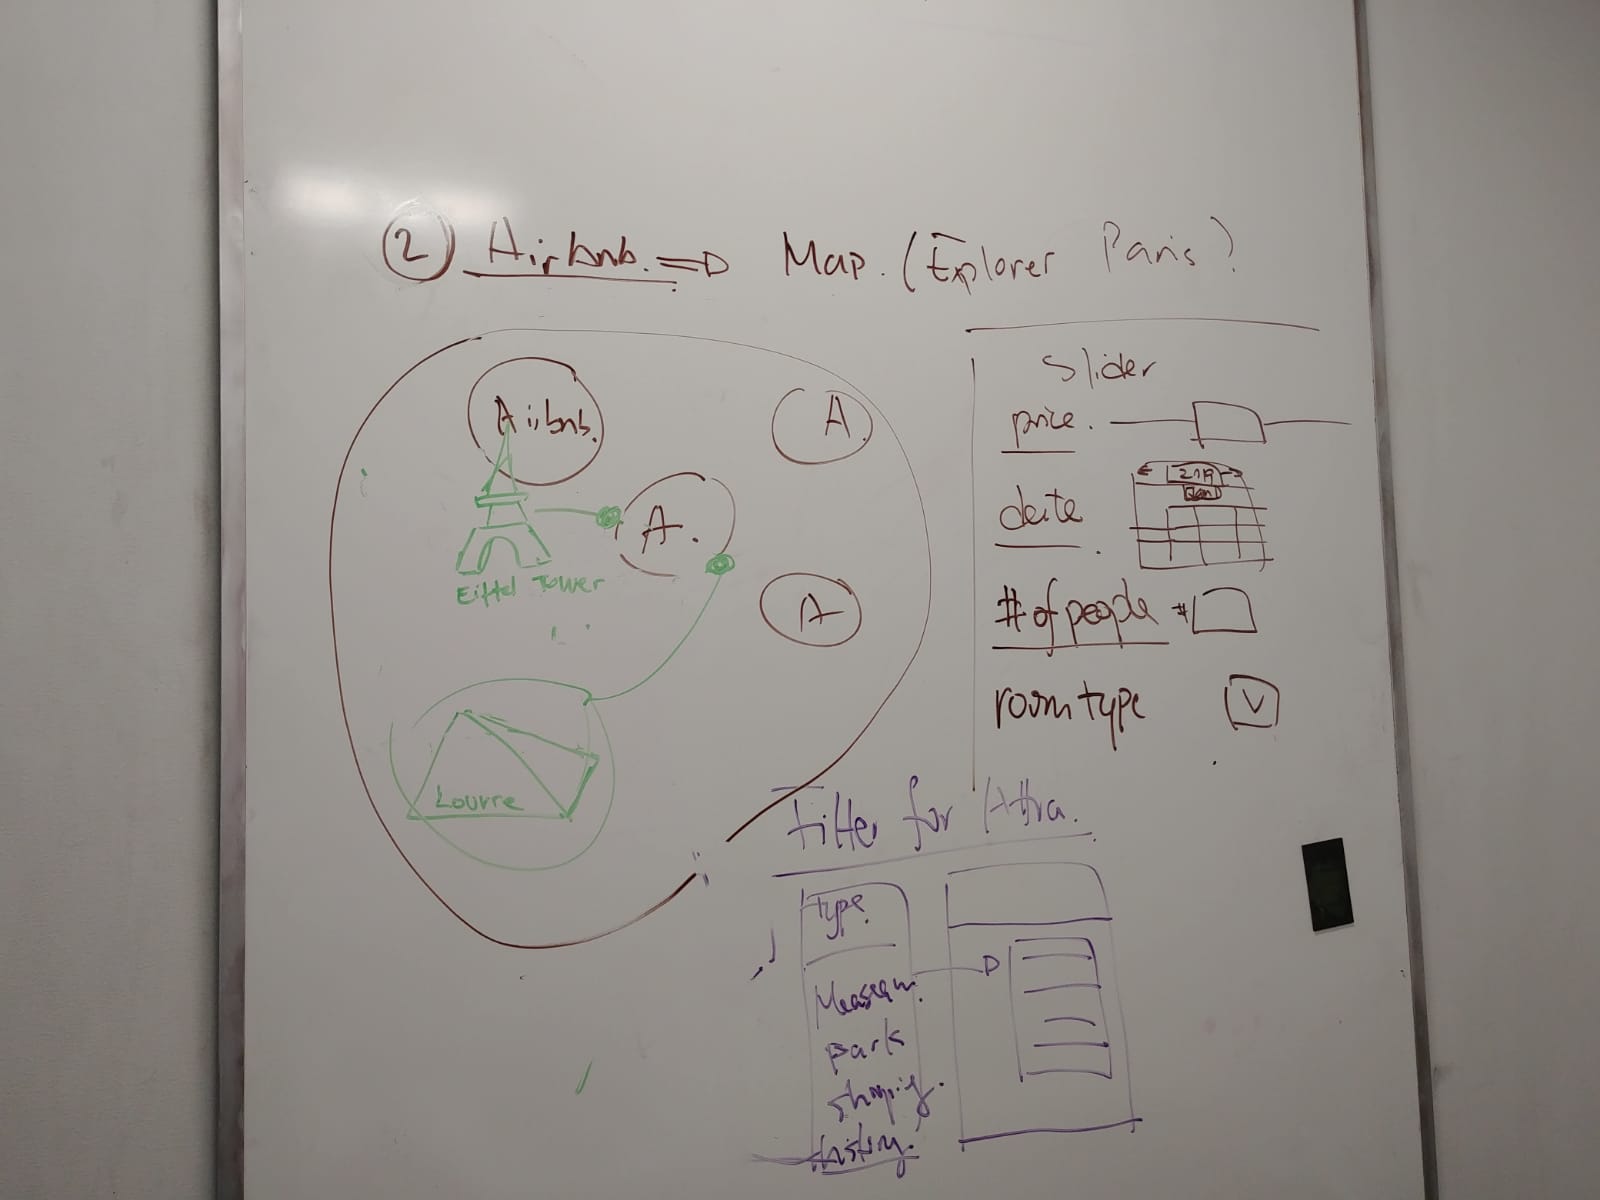 2 Airbnb. => Map. (Explorer Paris)
Airbnb.
A.
A.
A
Eiffel Tower
Louvre
Slider
price.
date
# of people #
room type V
Filter for Attra.
Type.
Measeam.
park
shoping.
history.